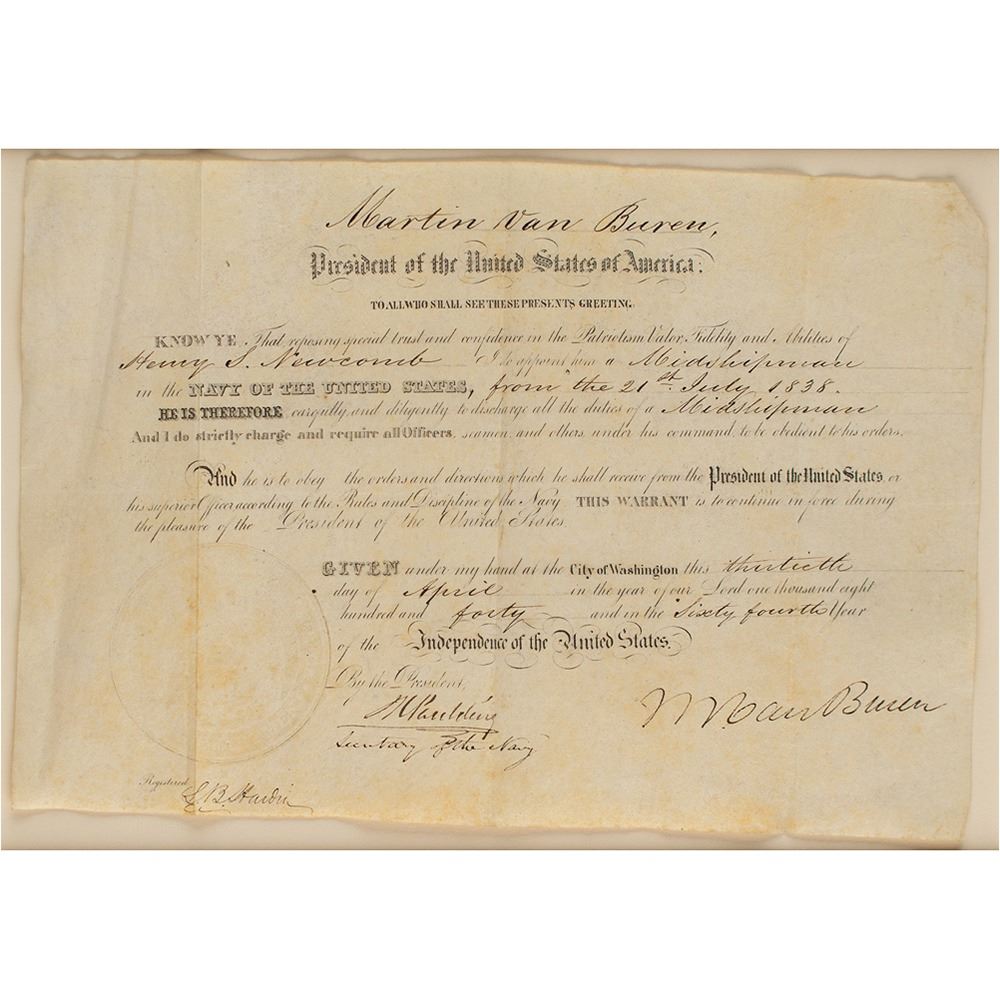 Martin Van Buren,
President of the United States of America.
TO ALL WHO SHALL SEE THESE PRESENTS GREETING.
KNOW YE That reposing special trust and confidence in the Patriotism Valor Fidelity and Abilities of
Henry S. Newcomb I do appoint him a Midshipman
in the NAVY OF THE UNITED STATES, from the 21st July 1838.
HE IS THEREFORE carefully and diligently to discharge all the duties of a Midshipman
And I do strictly charge and require all Officers, seamen and others under his command, to be obedient to his orders.
And he is to obey the orders and directions which he shall receive from the President of the United States or
his superior Officer according to the Rules and Discipline of the Navy THIS WARRANT is to continue in force during
the pleasure of the President of the United States.
GIVEN under my hand at the City of Washington this thirtieth
day of April in the year of our Lord one thousand eight
hundred and forty and in the Sixty fourth Year
of the Independence of the United States.
By the President,
JK Paulding
Secretary of the Navy
M Van Buren
Registered
L B Hardin